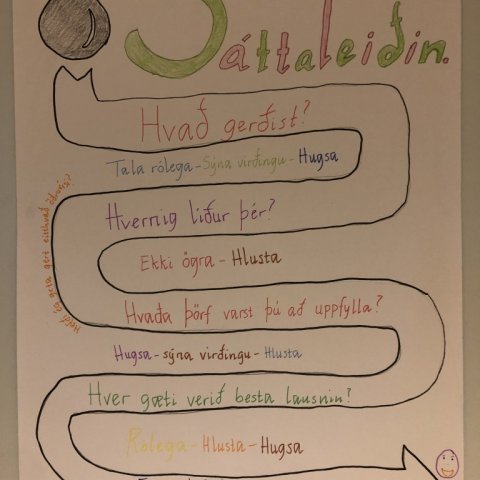 Sáttaleiðin.
Hvað gerðist?
Tala rólega - Sýna virðingu - Hugsa
Hvernig líður þér?
Ekki ögra - Hlusta
Hvaða þörf varst þú að uppfylla?
Hugsa - sýna virðingu - Hlusta
Hver gæti verið besta lausnin?
Rólega - Hlusta - Hugsa
gera eitthvað